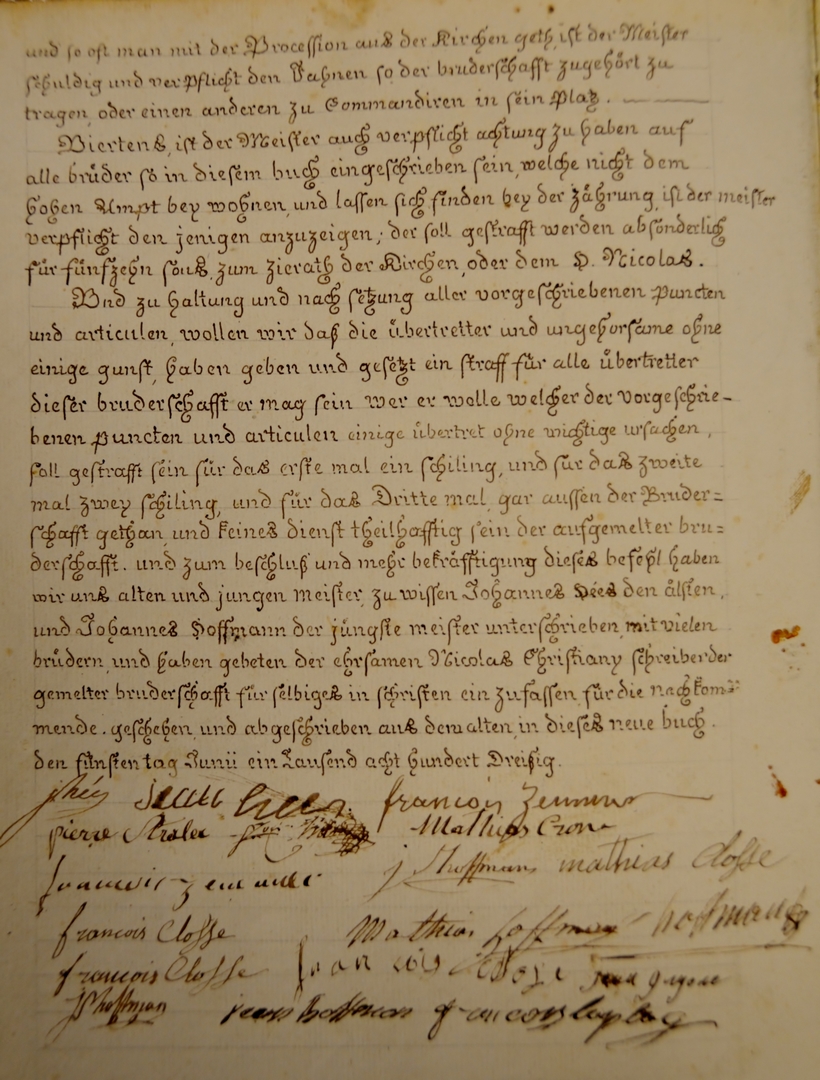 und so oft man mit der Procession auß der Kirchen geth, ist der Meister
schuldig und verpflicht den Vahnen so der bruderschafft zugehört zu
tragen oder einen anderen zu Commandiren in sein Platz.
Viertenß, ist der Meister auch verpflicht achtung zu haben auf
alle brüder so in diesem buch eingeschrieben sein, welche nicht dem
hohen Ampt bey wohnen, und lassen sich finden bey der zährung, ist der meister
verpflicht den jenigen anzuzeigen; der soll gestrafft werden absönderlich
für fünfzehn souß, zum zierath der Kirchen, oder dem S. Nicolaß.
Und zu haltung und nach setzung aller vorgeschriebenen puncten
und articulen, wollen wir daß die übertretter und ungehorsame ohne
einige gunst, haben geben und gesetzt ein straff für alle übertretter
dieser bruderschafft er mag sein wer er wolle welcher der vorgeschrie-
benen puncten und articulen einige übertret ohne wichtige ursachen,
soll gestrafft sein für daß erste mal ein schiling, und für daß zweite
mal zwey schiling, und für daß Dritte mal, gar aussen der Bruder=
schafft gethan, und keineß dienst theilhafftig sein der aufgemelter bru=
derschafft. und zum beschluß und mehr bekräfftigung dieseß befehl haben
wir unß alten und jungen meister, zu wissen Johanneß Heeß den älsten,
und Johanneß Hoffmann der jüngste meister unterschrieben, mit vielen
brüdern, und haben gebeten der ehrsamen Nicolaß Christiany schreiber der
gemelter bruderschafft für selbigeß in schriften ein zufassen, für die nachkom=
mende. geschehen, und abgeschrieben auß dem alten, in dieseß neue buch.
den fünften tag Junii ein Tausend acht hundert Dreisig.
Jean francois
pierre Mathias
J hoffmann mathias Closse
francois Closse Mathias hoffman
francois Closse
hoffman jean hoffman francois